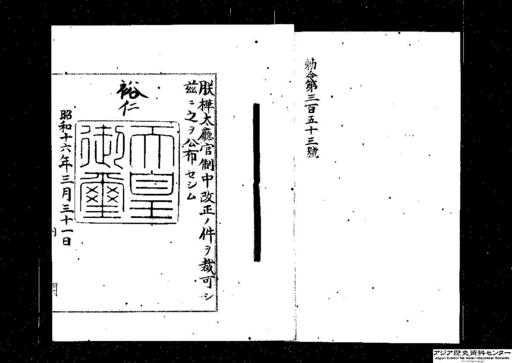 勅令第三百五十三號
朕樺太廳官制中改正ノ件ヲ裁可シ
茲ニ之ヲ公布セシム
裕仁
天皇
御璽
昭和十六年三月三十一日
アジア歴史資料センター
Japan Center for Asian Historical Records